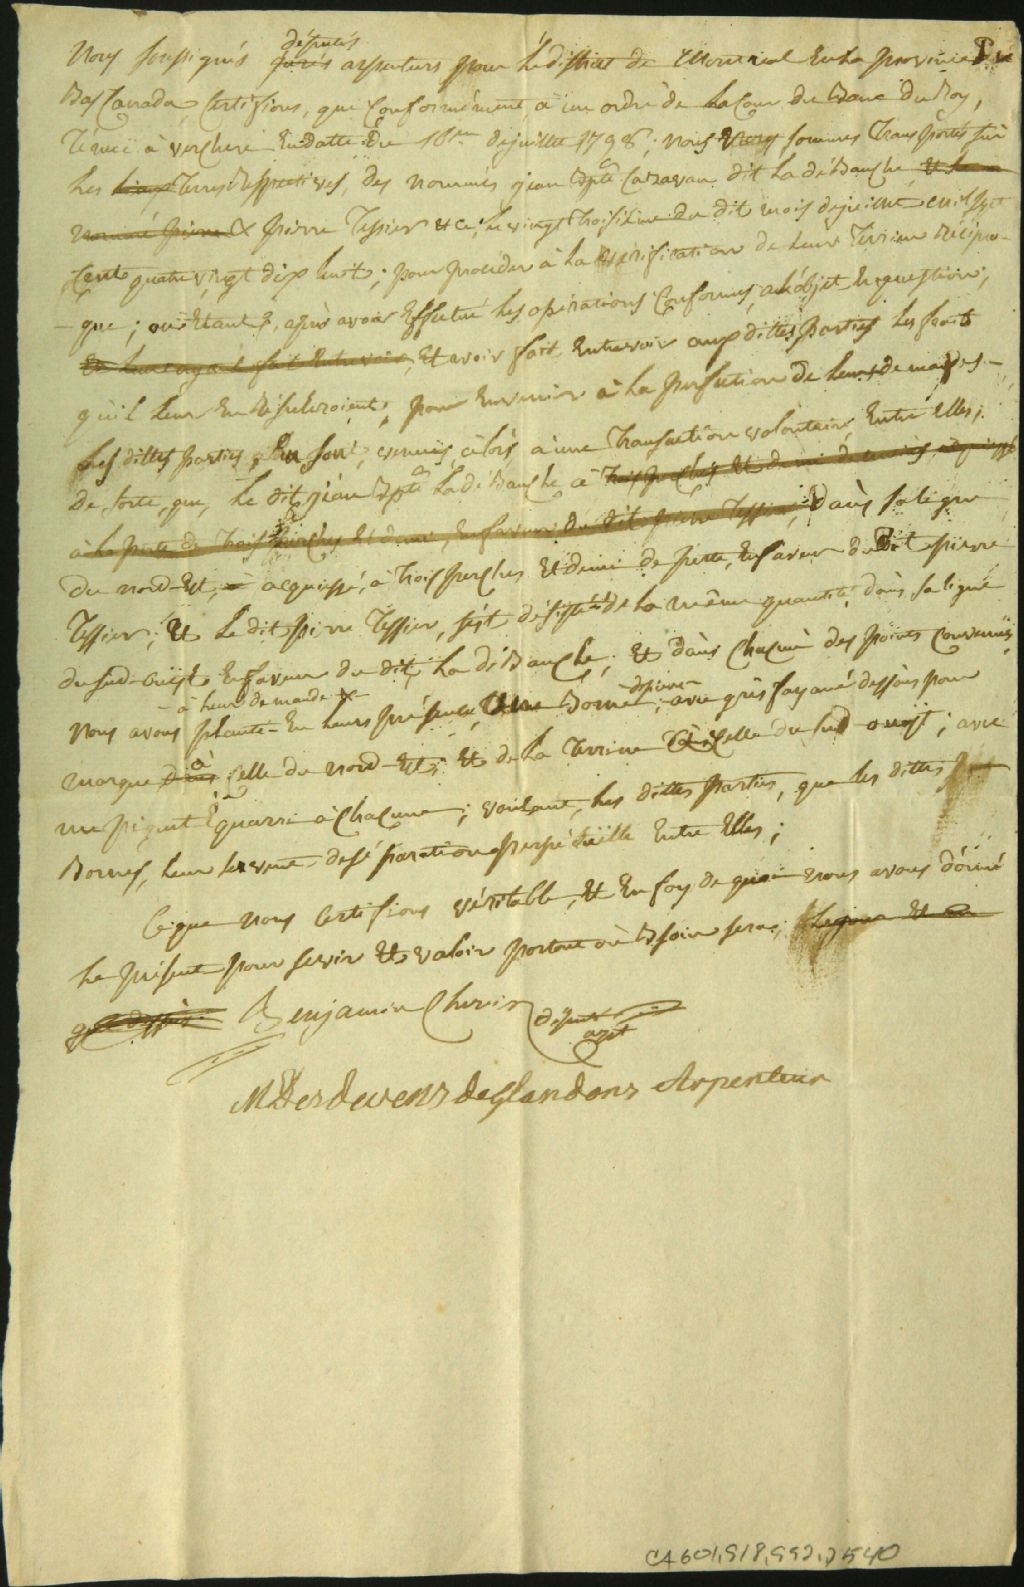 députés
Nous soussignés jurés arpenteurs pour le district de Montreal en la province du
Bas Canada, Certifions, que Conformément à un ordre de la Cour du Banc du Roy,
Ténuë à verchere En datte du 18em dejuillet 1798; nous Nous sommes Transportés sur
les Terres Respectives, des nommés jean Bpte Cazavan dit La déBauche, et le
nommé pierre & pierre Tessier et ce; le vingt troisième du dit mois dejuillet mil sept
Cent quatre vingt dix huit; pour proceder à la vérification de leur Terrein Récipro-
-que; où Etant, après avoir Effectué les opérations Conformes, a l'objet En question;
Et avoir fait Entrevoir aux dittes parties les frais
qu'il leur En Résulteroient, pour Envenir à la perfection de leurs demandes-
Les dittes parties, En sont, venuës, alors, a une Transaction volontaire Entre Elles;
De sorte, que, le dit jean Bpte La déBauche a trois perches Et demi
à la perte de trois perches Et demi, En faveur du dit pierre Tessier, Dans sa ligne
Du nord-Est, acquissé, à trois perches Et demi de perte, En faveur du Dit pierre
Tessier; Et le dit pierre Tessier, s'est désisté de la même quantité, dans sa ligne
du sud-ouest En faveur du dit La déBauche; Et dans Chacune des points Convenus,
- à leur demande -
nous avons planté En leurs présence, Une Borne, de pierre avec grès fayancé dessous pour
marque à Celle du nord-Est; Et de la Terrine à Celle du sud-ouest; avec
un piquet Equarri à Chacune; voulant, les dittes parties, que les dittes
Bornes, leur servent de séparation perpétuëlle Entre Elles;
Ce que nous Certifions véritable, Et En foy de quoi nous avons donné
le présent pour servir Et valoir partout où Besoin sera; Le jour Et an
que dessus. Benjamin Cherrier député
arpt
M Des devens de Glandons Arpenteur
CA601,S18,SS2,D540